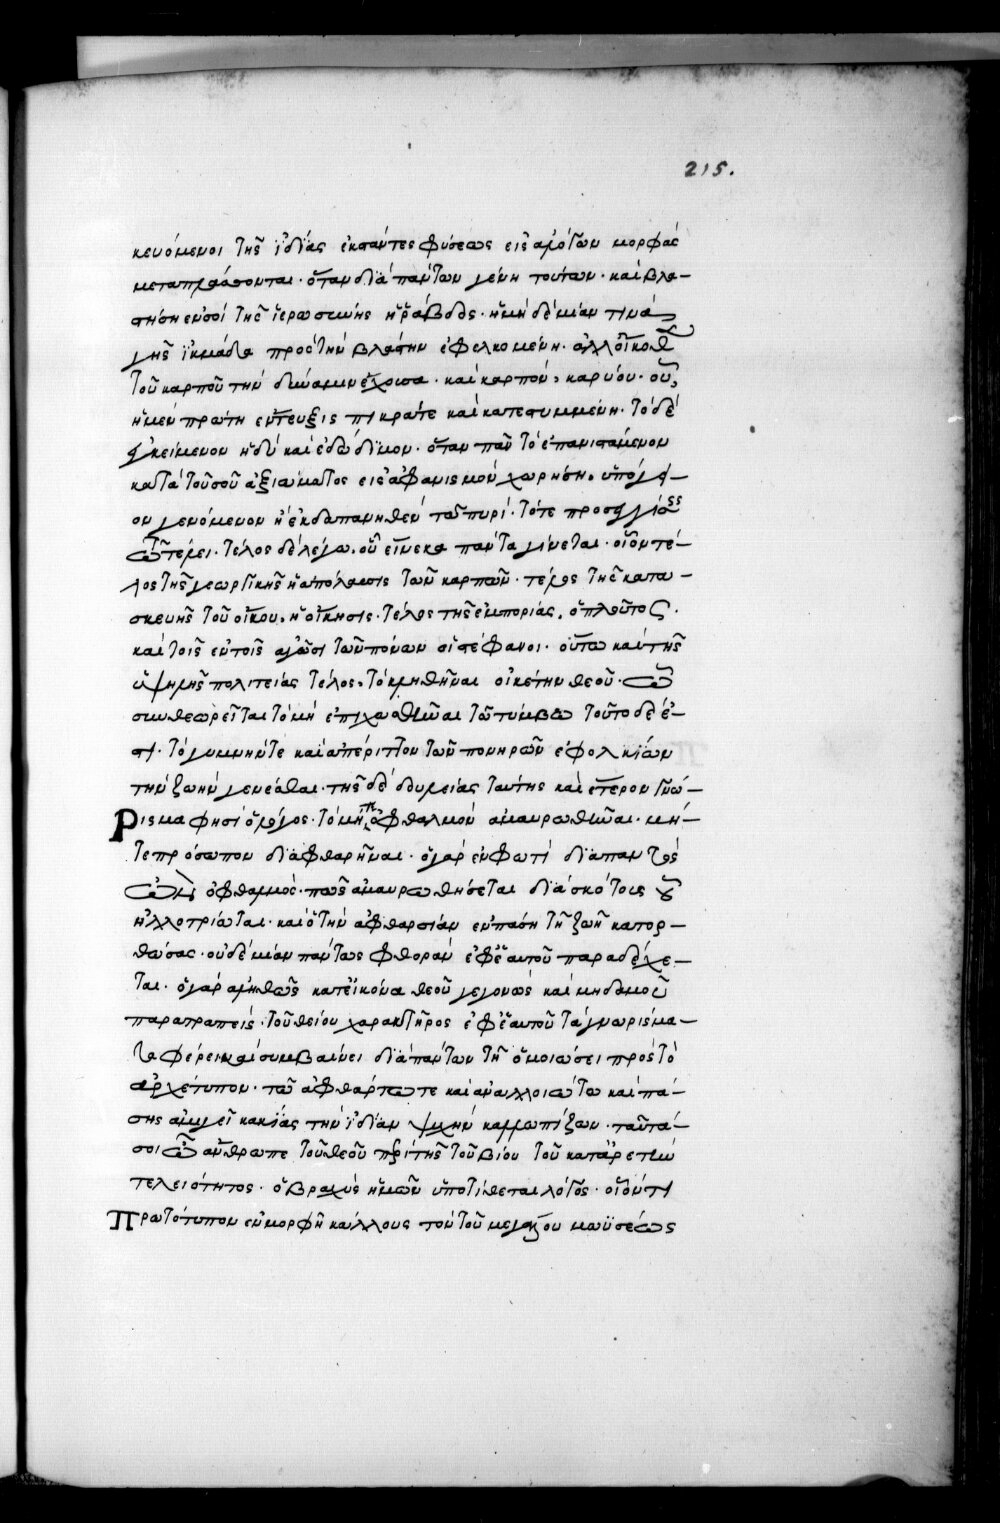 215.
κευόμενοι τῆς ἰδίας ἐκστάντες φύσεως εἰς ἀλόγων μορφὰς
μεταπλάσσονται· ὅταν διὰ πάντων γένῃ τούτων· καὶ βλα-
στήσῃ ἐν σοὶ τῆς ἱερωσύνης ἡ ῥάβδος· ἡ μηδεμίαν τινὰ
γῆς ἰκμάδα πρὸς τὴν βλάστην ἐφελκομένη· ἀλλ' οἴκοθεν
τοῦ καρποῦ τὴν δύναμιν ἔχουσα· καὶ καρπὸν, καρύου· οὗ,
ἡ μὲν πρώτη ἔντευξις πικρά τε καὶ κατεστυμμένη· τὸ δὲ
ἐγκείμενον ἡδὺ καὶ ἐδώδιμον· ὅταν πᾶν τὸ ἐπανιστάμενον
κατὰ τοῦ σοῦ ἀξιώματος εἰς ἀφανισμὸν χωρήσῃ, ὑπόγει-
ον γενόμενον ἢ ἐκδαπανηθὲν τῷ πυρί· τότε προσεγγίσεις
τῷ τέλει· τέλος δὲ λέγω, οὗ εἵνεκα πάντα γίνεται· οἷον τέ-
λος τῆς γεωργικῆς ἡ ἀπόλαυσις τῶν καρπῶν· τέλος τῆς κατα-
σκευῆς τοῦ οἴκου, ἡ οἴκησις· τέλος τῆς ἐμπορίας, ὁ πλοῦτος·
καὶ τοῖς ἐν τοῖς ἀγῶσι τῶν πόνων οἱ στέφανοι· οὕτω καὶ τῆς
ὑψηλῆς πολιτείας τέλος, τὸ κληθῆναι οἰκέτην θεοῦ· ᾧ
συνθεωρεῖται τὸ μὴ ἐπιχωσθῆναι τῷ τύμβῳ τοῦτο δέ ἐ-
στι τὸ γυμνήν τε καὶ ἀπέριττον τῶν πονηρῶν ἐφολκίων
τὴν ζωὴν γενέσθαι· τῆς δὲ δουλείας ταύτης καὶ ἕτερον γνώ-
ρισμα φησὶ ὁ λόγος· τὸ μήτε ὀφθαλμὸν ἀμαυρωθῆναι· μή-
τε πρόσωπον διαφθαρῆναι· ὁ γὰρ ἐν φωτὶ διαπαντὸς
ὢν ὀφθαλμὸς· πῶς ἀμαυρωθήσεται διὰ σκότους οὗ
ἠλλοτρίωται· καὶ ὁ τὴν ἀφθαρσίαν ἐν πάσῃ τῇ ζωῇ κατορ-
θώσας· οὐδεμίαν πάντως φθορὰν ἐφ' ἑαυτοῦ παραδέχε-
ται· ὁ γὰρ ἀληθῶς κατ' εἰκόνα θεοῦ γεγονὼς καὶ μηδαμοῦ
παρατραπεὶς· τοῦ θείου χαρακτῆρος ἐφ' ἑαυτοῦ τὰ γνωρίσμα-
τα φέρει καὶ συμβαίνει διὰ πάντων τῇ ὁμοιώσει πρὸς τὸ
ἀρχέτυπον· τῷ ἀφθάρτῳ τε καὶ ἀναλλοιώτῳ καὶ πά-
σης ἀμιγεῖ κακίας τὴν ἰδίαν ψυχὴν καλλωπίζων· ταῦτά-
σοι ὦ ἄνθρωπε τοῦ θεοῦ περὶ τῆς τοῦ βίου τοῦ κατ' ἀρετὴν
τελειότητος· ὁ βραχὺς ἡμῶν ὑποτίθεται λόγος· οἷόν τι
πρωτότυπον ἐν μορφῇ κάλλους τὸν τοῦ μεγάλου μωϋσέως